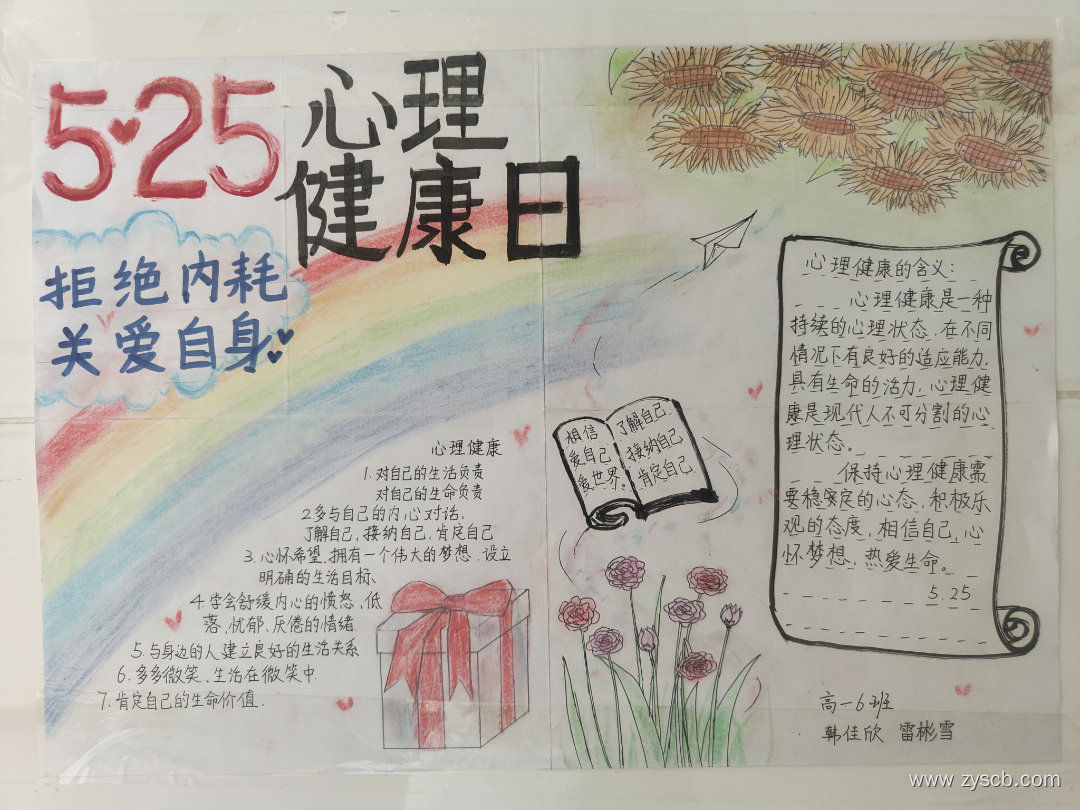 5·25
心理
健康日
拒绝内耗
关爱自身
心理健康
1.对自己的生活负责
对自己的生命负责
2多与自己的内心对话,
了解自己,接纳自己,肯定自己
3.心怀希望,拥有一个伟大的梦想.设立
明确的生活目标、
4.学会舒缓内心的愤怒、低
落、忧郁、厌倦的情绪.
5.与身边的人建立良好的生活关系
6.多多微笑,生活在微笑中.
7.肯定自己的生命价值.
相信
爱自己
爱世界。
了解自己.
接纳自己
肯定自己
心理健康的含义:
心理健康是一种
持续的心理状态,在不同
情况下有良好的适应能力,
具有生命的活力,心理健
康是现代人不可分割的心
理状态。
保持心理健康需
要稳定的心态,积极乐
观的态度,相信自己,心
怀梦想,热爱生命。
5.25
高一6班
韩佳欣 雷彬雪
www.zyscb.com